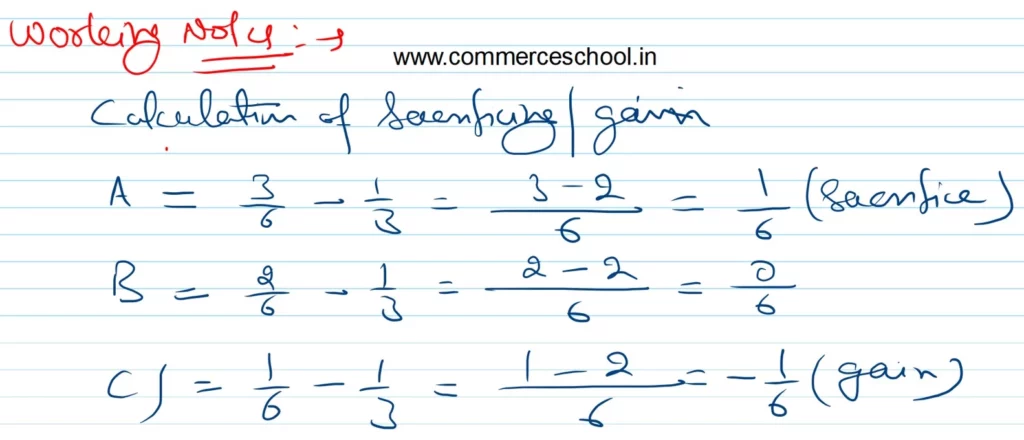 Working Notes :- →
www.commerceschool.in
Calculation of Sacrificing / gain
A = 3/6 - 1/3 = 3 - 2/6 = 1/6 (Sacrifice)
B = 2/6 - 1/3 = 2 - 2/6 = 0/6
C) = 1/6 - 1/3 = 1 - 2/6 = - 1/6 (gain)